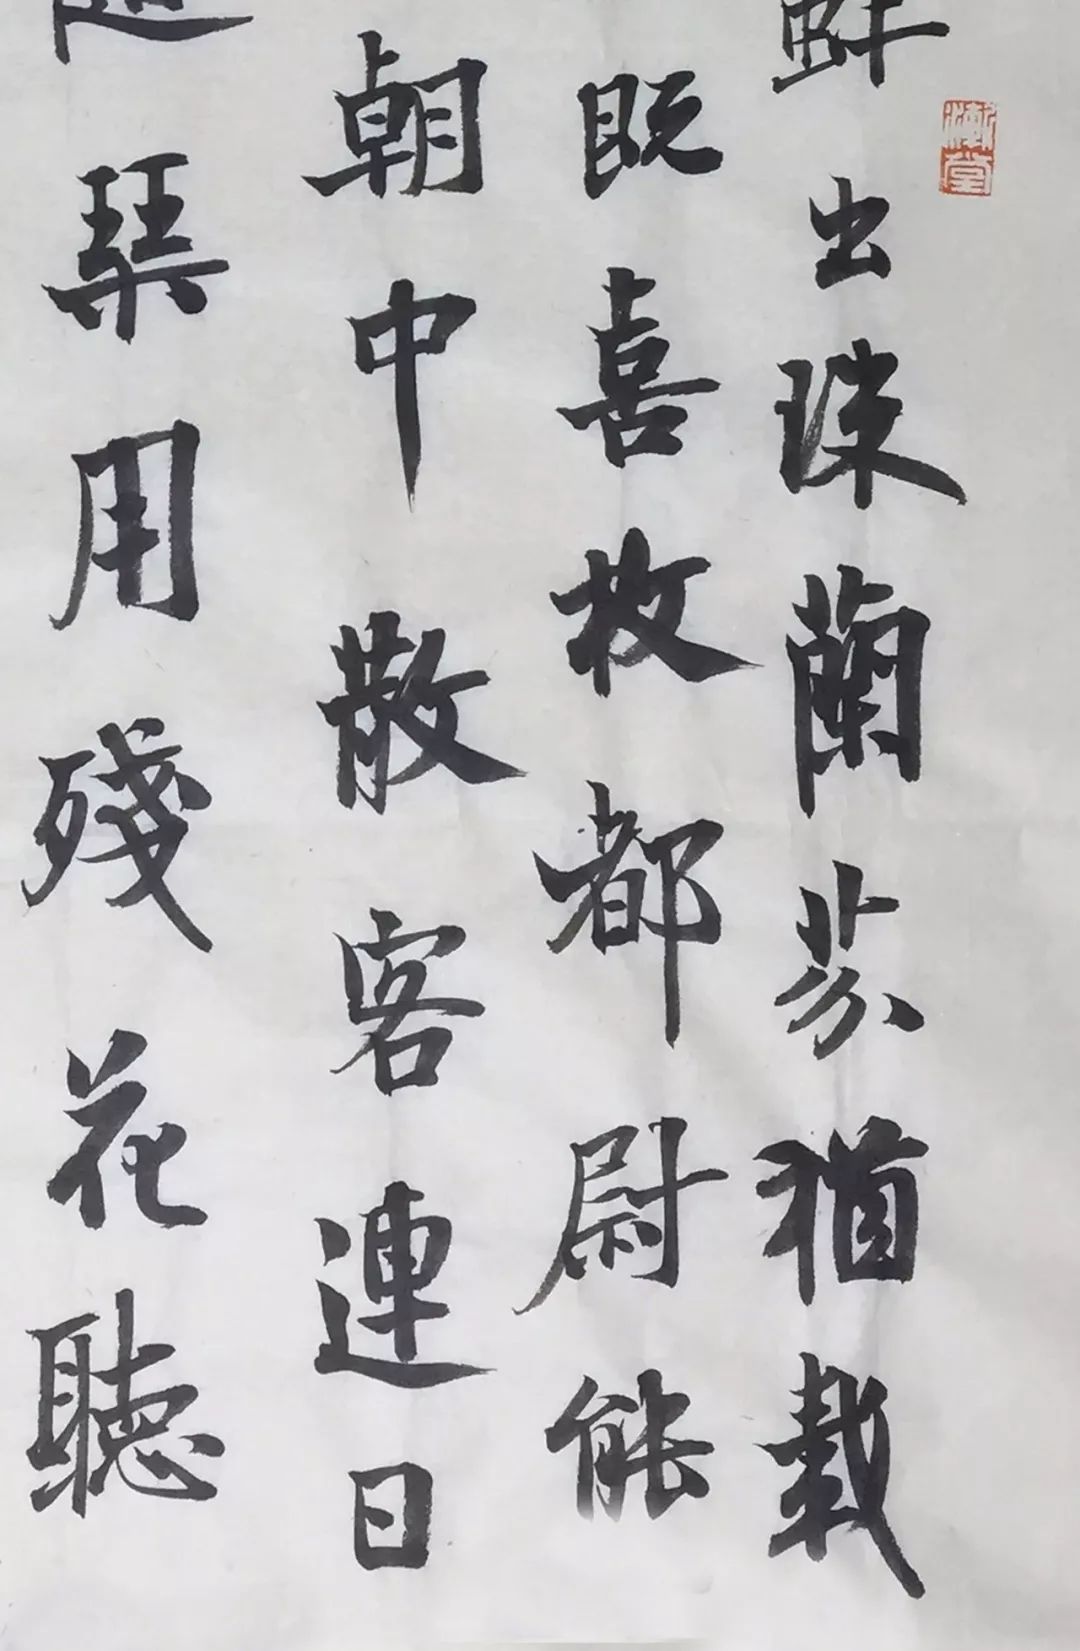 蚌出珠蘭芬猶載
既喜枚都尉能
朝中散客連日
琴用殘花聽